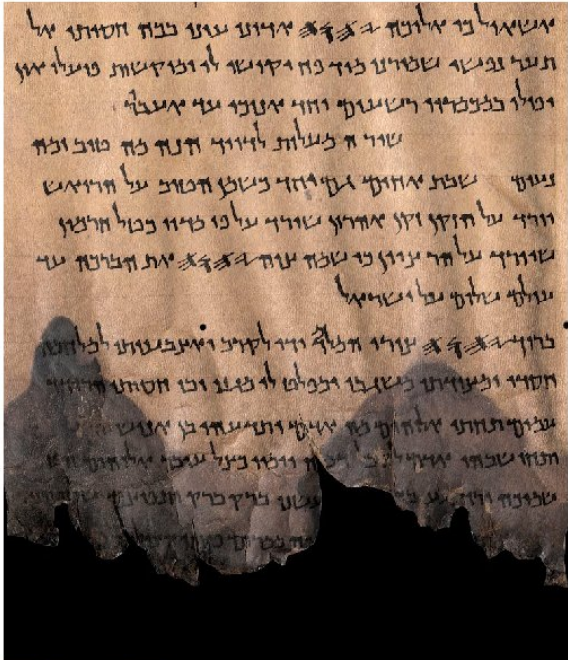 אשאול כי אליכה 𐤉𐤄𐤅𐤄 אדוני עיני בכה חסיתי אל
תער נפשי שמורני מיד פח יקושו לי ומוקשות פועלי און
יפולו במכמריו רשעים יחד אנוכי עד אעבר
שיר המעלות לדויד הנה מה טוב ומה
נעים שבת אחים גם יחד כשמן הטוב על הרואש
יורד על הזקן זקן אהרון שירד על פי מדיו כטל חרמון
שיורד על הר ציון כי שמה צוה 𐤉𐤄𐤅𐤄 את הברכה עד
עולם שלום על ישראל
ברוך 𐤉𐤄𐤅𐤄 צורי המלמד ידי לקרב ואצבעותי למלחמה
חסדי ומצודתי משגבי ומפלט לי מגני ובו חסיתי הרודד
עמים תחתי אלוהים מה אדם ותדעהו בן אנוש
אדם וימיו כצל עובר אלוהים
שמיכה ורד גע עשנו ברק